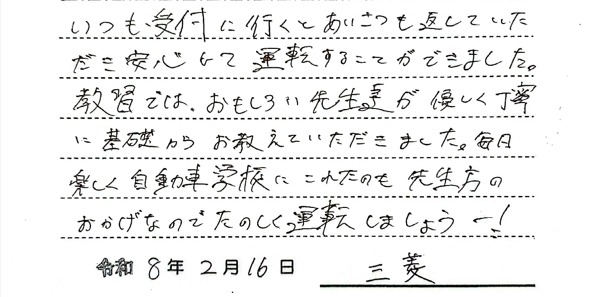 いつも受付に行くとあいさつも返していた
だき安心して運転することができました。
教習では、おもしろい先生達が優しく丁寧
に基礎からお教えていただきました。毎日
楽しく自動車学校にこれたのも先生方の
おかげなのでたのしく運転しましょうー!
令和8年2月16日 三菱